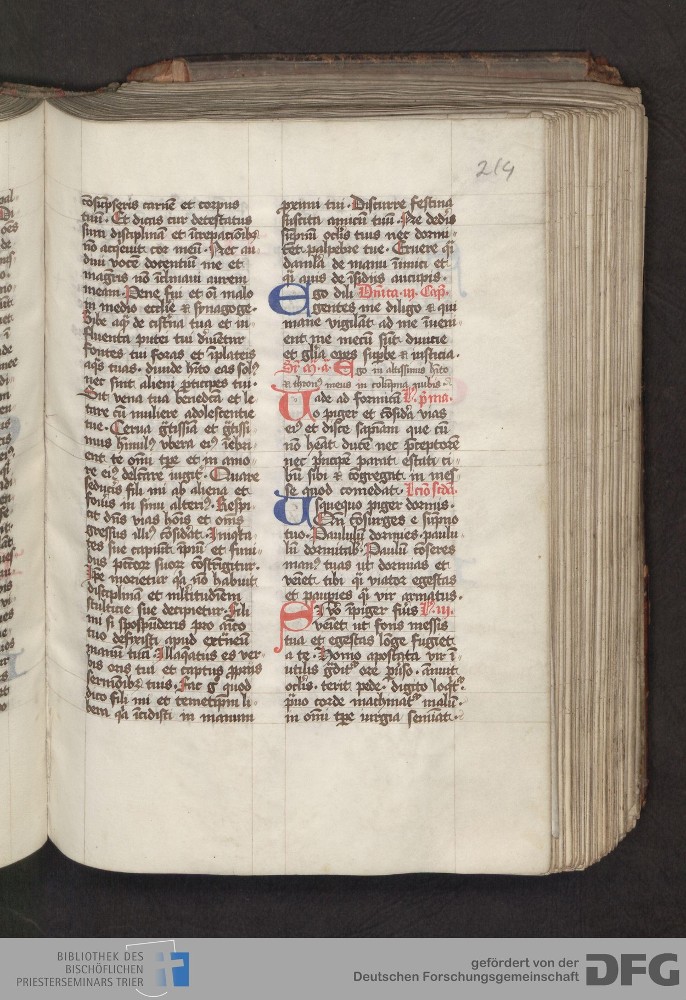 214
cōsūpseris carnē et corpus
tuū. Et dicas cur detestatus
sum disciplinā et īcrepacionibꝫ
nō acq̇euit cor meū. Nec au-
diui vocē docentiū me et
magr̄is nō īclinaui aurem
meam. Pene fui ī om̄i malo
in medio ecclīe & synagoge.
Bibe aq̄ de cist̄na tua et in-
fluenta putei tui. Diriuetur
fontes tui foras et ī plateis
aq̄s tuas. diuide. hīto eas solꝰ
nec sint alieni p̄ticipes tui.
Sit vena tua benedc̄a et le-
tare cū muliere adolescentie
tue. Cerua gr̄tissīa et gr̄tissi-
mus hīnulꝰ vbera eiꝰ īebri-
ent te om̄i tp̄e et in amo-
re eiꝰ delc̄are iugit̄. Quare
seduc̄is fili mi ab aliena et
fouis in sinu alteriꝰ. Respi-
cit dn̄s vias hōis et om̄s
gressus illiꝰ cōsidat. Iniq̇ta-
tes sue capiūt īpiū et funi-
bus pcc̄or suor cōstrīgitur.
Ipe morietur q̇a nō habuit
disciplinā et mltitudīem
stulticie sue decipietur. Fili
mi si spospūderis pro aīco
tuo defixisti apud ext̄neū
manū tuā. Illaq̄atus es ver-
bis oris tui et captus pp̄rijs
sermōibꝫ tuis. Fac gͦ quod
dico fili mi et temetip̄m li-
bera q̇a īcidisti in manum
primi tui. Discurre festina
suscita amicū tuū. Ne dedis
sūpnū oclīs tuis nec dormi-
tēt palpebre tue. Eruere q̇
damĺa de manu īimici et
q̇ auis de īsidijs aucupis.
Ego dili Dn̄ica .iij. Cap.
gentes me diligo & qui
mane vigilāt ad me īueni-
ent me. mecū sūt diuicie
et glīa opes supbe & iusticia.
Ego in altissimis hīto
& thronꝰ meus in colūpna nubis.
Vade ad formicā L. p̄ma.
o piger et cōsida vias
eiꝰ et disce sapīam que cū
nō heāt ducē nec p̄ceptorē
nec p̄ncipē parat estati ci-
bū sibi & cōgregat in mes-
se quod comedat. Lcīo scd̄a.
Vsquequo piger dormis.
Qn̄ cōsurges e sūpno
tuo. Paululū dormies. paulu-
lū dormitab. Paulū cōseres
manꝰ tuas ut dormias et
veīet tibi q̇ viator egestas
et paup̄ies q̇ vir armatus.
Si v̄o īpiger fuis L. iij.
veīet ut fons messis
tua et egestas lōge fugiet
a te. Homo apostata vir ī-
utilis gdit ore p̄uso. ānuit
oclīs. terit pede. digito loq̇t.
p̄uo corde machinat malū.
in om̄i tp̄e iurgia semīat.
BIBLIOTHEK DES
BISCHÖFLICHEN
PRIESTERSEMINARS TRIER
gefördert von der
Deutschen Forschungsgemeinschaft
DFG